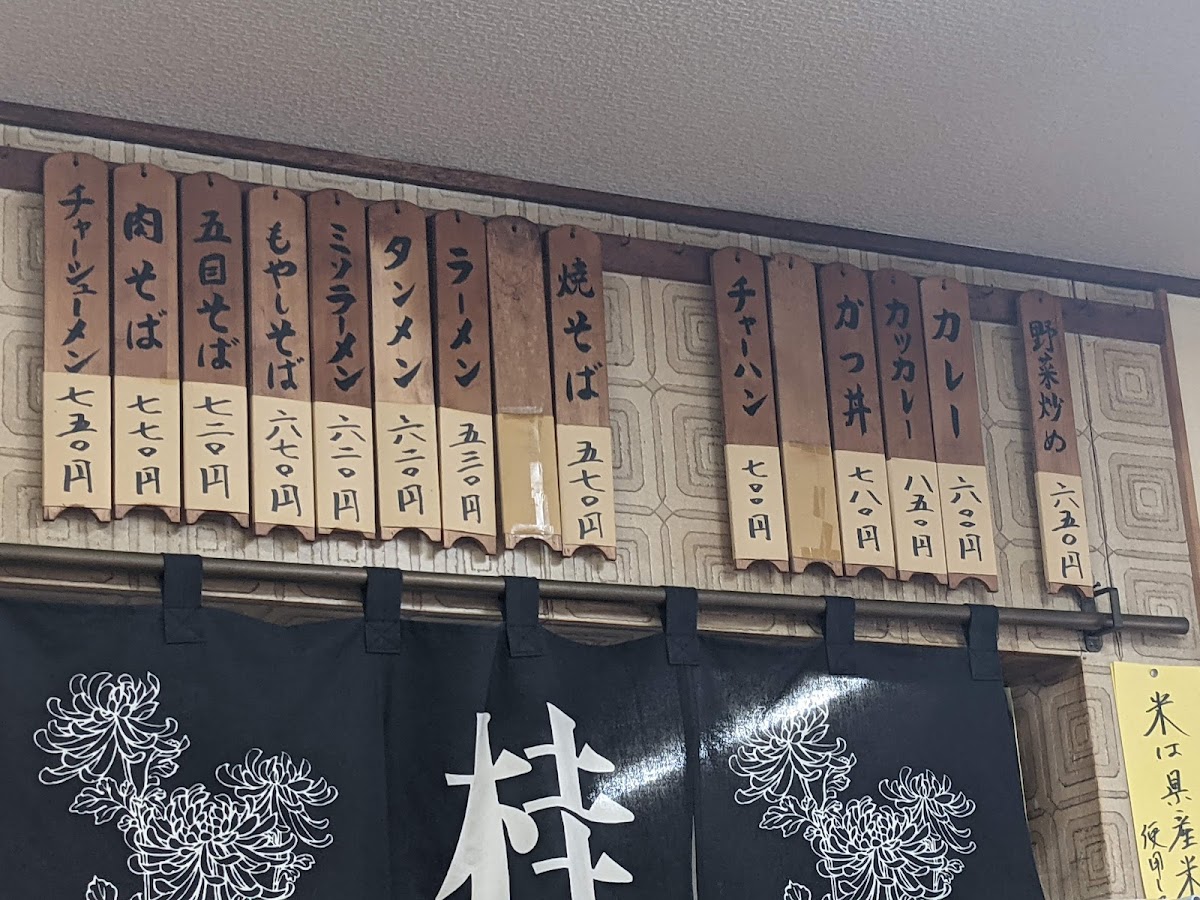 チャーシューメン 七五〇円
肉そば 七七〇円
五目そば 七二〇円
もやしそば 六七〇円
ミソラーメン 六二〇円
タンメン 六二〇円
ラーメン 五三〇円
焼そば 五七〇円
チャーハン 七〇〇円
かつ丼 七八〇円
カツカレー 八五〇円
カレー 六〇〇円
野菜炒め 六五〇円
桂
米は県産米
使用し